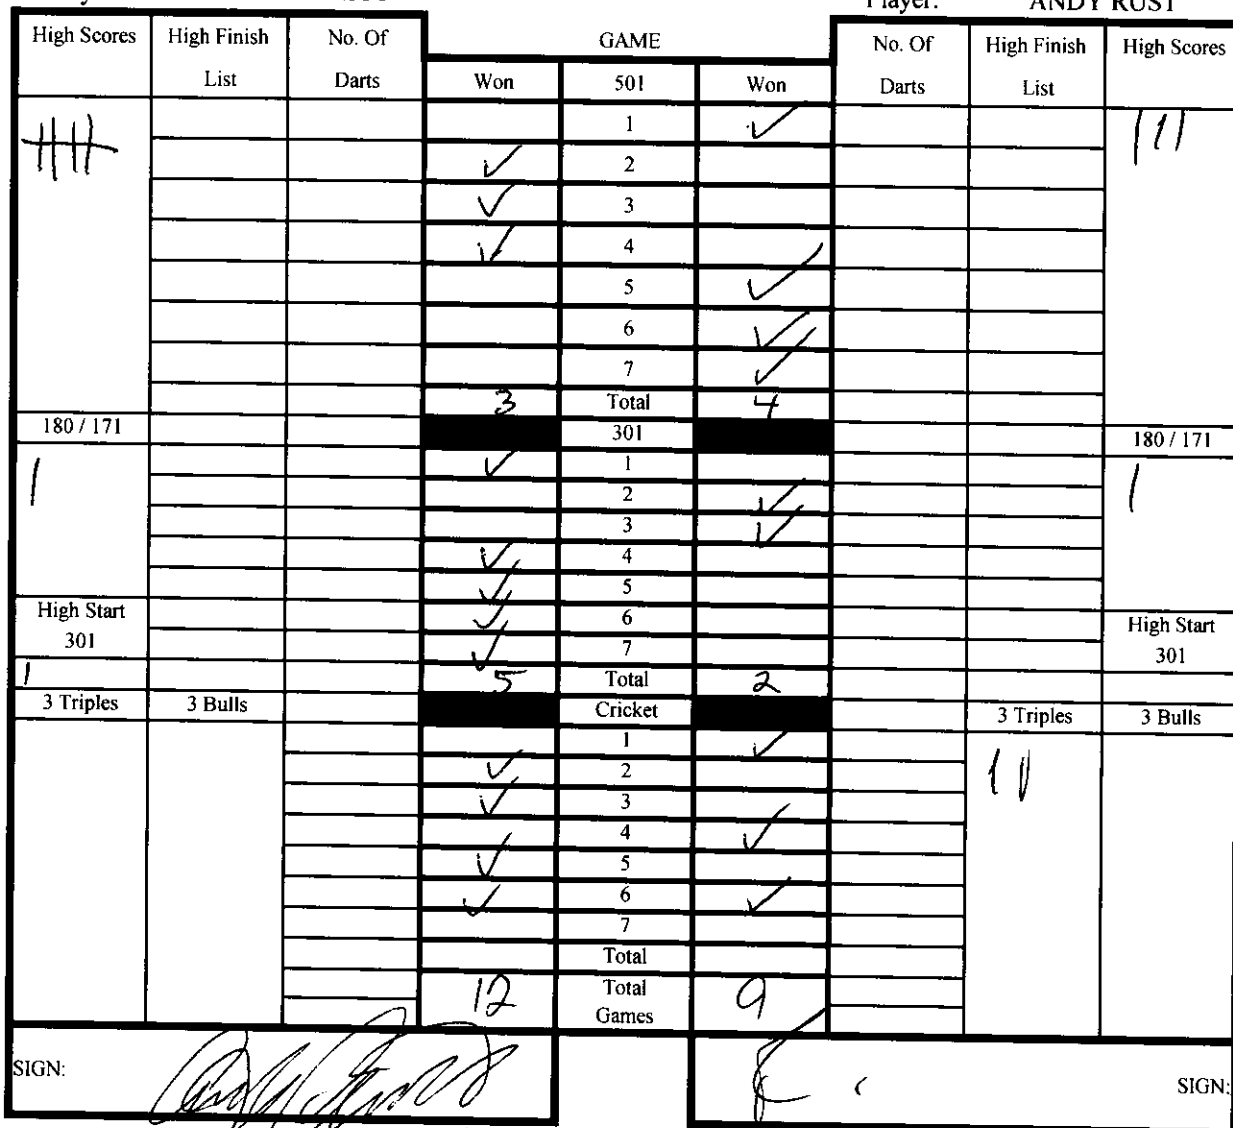 Player: ANDY RUST
High Scores High Finish List No. Of Darts GAME No. Of Darts High Finish List High Scores
Won 501 Won
1 ✓
✓ 2
✓ 3
✓ 4
5 ✓
6 ✓
7 ✓
3 Total 4
180 / 171 301 180 / 171
✓ 1
2 ✓
3 ✓
✓ 4
✓ 5
High Start 301 ✓ 6 High Start 301
✓ 7
5 Total 2
3 Triples 3 Bulls Cricket 3 Triples 3 Bulls
1 ✓
✓ 2
✓ 3
4 ✓
✓ 5
✓ 6 ✓
7
Total
12 Total Games 9
SIGN: SIGN: